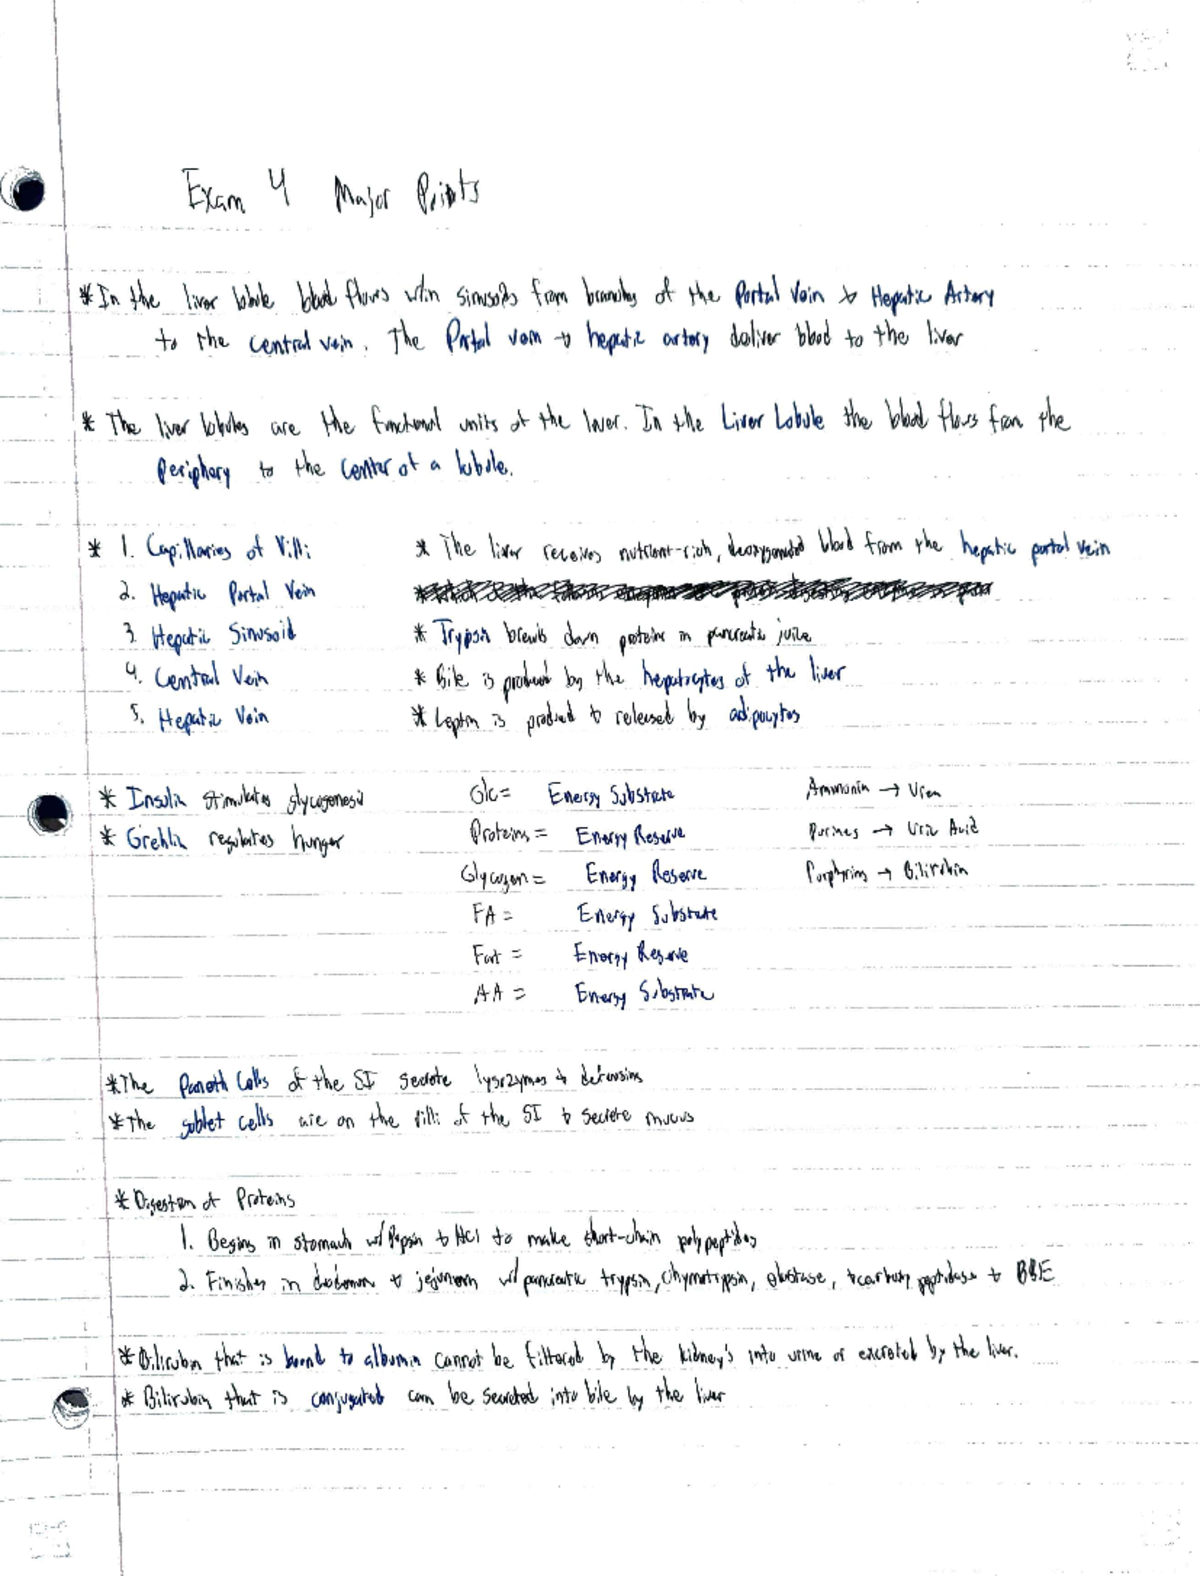 Exam 4 Major Points
* In the liver lobule blood flows w/in sinusoids from branches of the Portal Vein & Hepatic Artery
to the central vein. The Portal vein & hepatic artery deliver blood to the liver
* The liver lobules are the functional units of the liver. In the Liver Lobule the blood flows from the
Periphery to the center of a lobule.
* 1. Capillaries of Villi
2. Hepatic Portal Vein
3. Hepatic Sinusoid
4. Central Vein
5. Hepatic Vein
* The liver receives nutrient-rich, deoxygenated blood from the hepatic portal vein
* Trypsin breaks down proteins in pancreatic juice
* Bile is produced by the hepatocytes of the liver
* Leptin is produced & released by adipocytes
* Insulin stimulates glycogenesis
* Grehlin regulates hunger
Glc = Energy Substrate
Proteins = Energy Reserve
Glycogen = Energy Reserve
FA = Energy Substrate
Fat = Energy Reserve
AA = Energy Substrate
Ammonia → Urea
Purines → Uric Acid
Porphyrins → Bilirubin
* The Paneth Cells of the SI secrete lysozymes & defensins
* The goblet cells are on the villi of the SI & secrete mucus
* Digestion of Proteins
1. Begins in stomach w/ Pepsin & HCl to make short-chain polypeptides
2. Finishes in duodenum & jejunum w/ pancreatic trypsin, chymotrypsin, elastase, & carboxypeptidase & BBE
* Bilirubin that is bound to albumin cannot be filtered by the kidney's into urine or excreted by the liver.
* Bilirubin that is conjugated can be secreted into bile by the liver